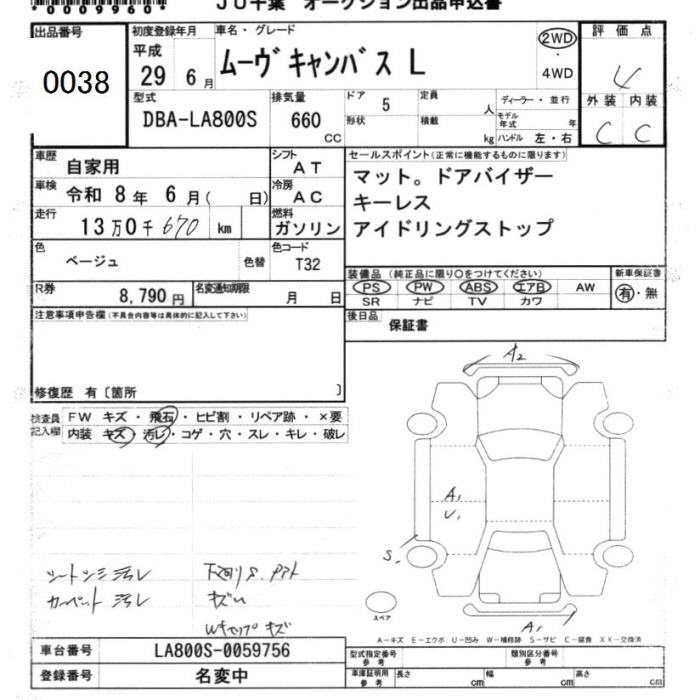 *00099604*
JU千葉 オークション出品申込書
出品番号
0038
初度登録年月
平成
29年 6月
車名・グレード
ムーヴキャンバス L
2WD
・
4WD
評価点
4
外装 内装
C C
型式
DBA-LA800S
排気量
660
cc
ドア 5
定員 人
形状
積載 kg
ディーラー・並行
モデル年式 年
ハンドル 左・右
車歴 自家用
シフト AT
車検 令和 8年 6月( 日)
冷房 AC
走行 13万0千670 km
燃料 ガソリン
色 ベージュ 色替
色コード T32
R券 8,790円
名変通知期限 月 日
セールスポイント(正常に機能するものに限ります)
マット。ドアバイザー
キーレス
アイドリングストップ
装備品(純正品に限り○をつけてください)
新車保証書
PS PW ABS エアB AW
SR ナビ TV カワ
有・無
後日品 保証書
注意事項申告欄(不具合内容等は具体的に記入して下さい)
修復歴 有〔箇所 〕
検査員記入欄
FW キズ・飛石・ヒビ割・リペア跡・×要
内装 キズ・汚レ・コゲ・穴・スレ・キレ・破レ
A2
A1
U1
S1
A1
スペア
シートシミ汚レ
カーペット汚レ
下回りS.
キズ
Wキャップキズ
A-キズ E-エクボ U-凹み W-補修跡 S-サビ C-腐食 XX-交換済
車台番号 LA800S-0059756
登録番号 名変中
型式指定番号 参考
類別区分番号 参考
車庫証明用 参考
長さ cm
幅 cm
高さ cm